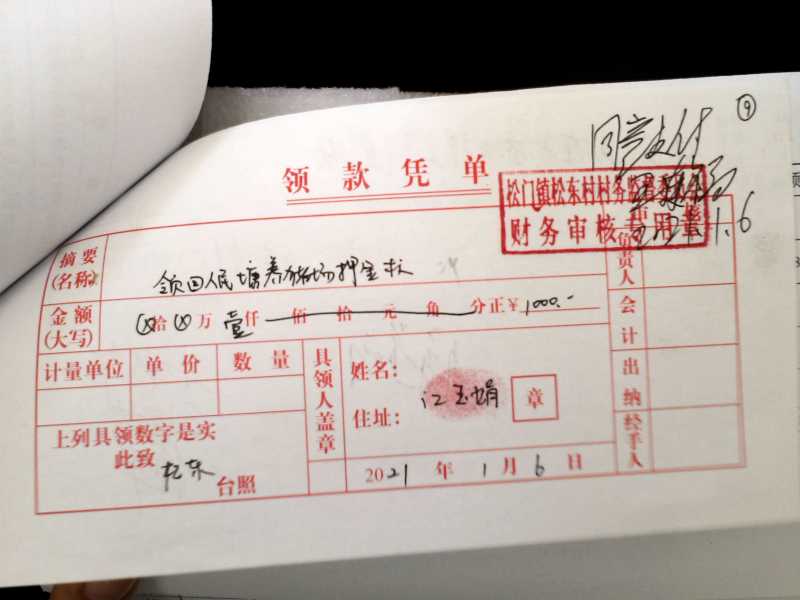 ⑨
同意支付
领款凭单
松门镇松东村村务监督
财务审核专用章
1.6
摘要
(名称)
领回人民塘养猪场押金款
负责人
金额
(大写)
拾 万 壹仟 佰 拾 元 角 分正¥1000.-
会计
计量单位 单价 数量
具领人盖章
姓名:
江玉娟
章
住址:
出纳
上列具领数字是实
此致
松东
台照
2021年1月6日
经手人